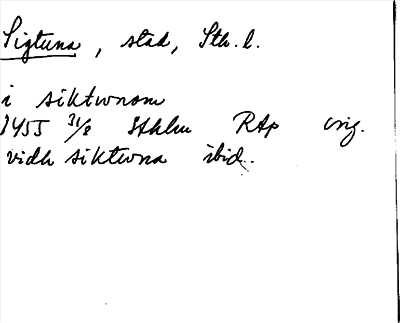 Sigtuna, stad, Sth. l.
i siktwnom
1455 31/8 Sthlm RAp orig.
vidh siktwna ibid.